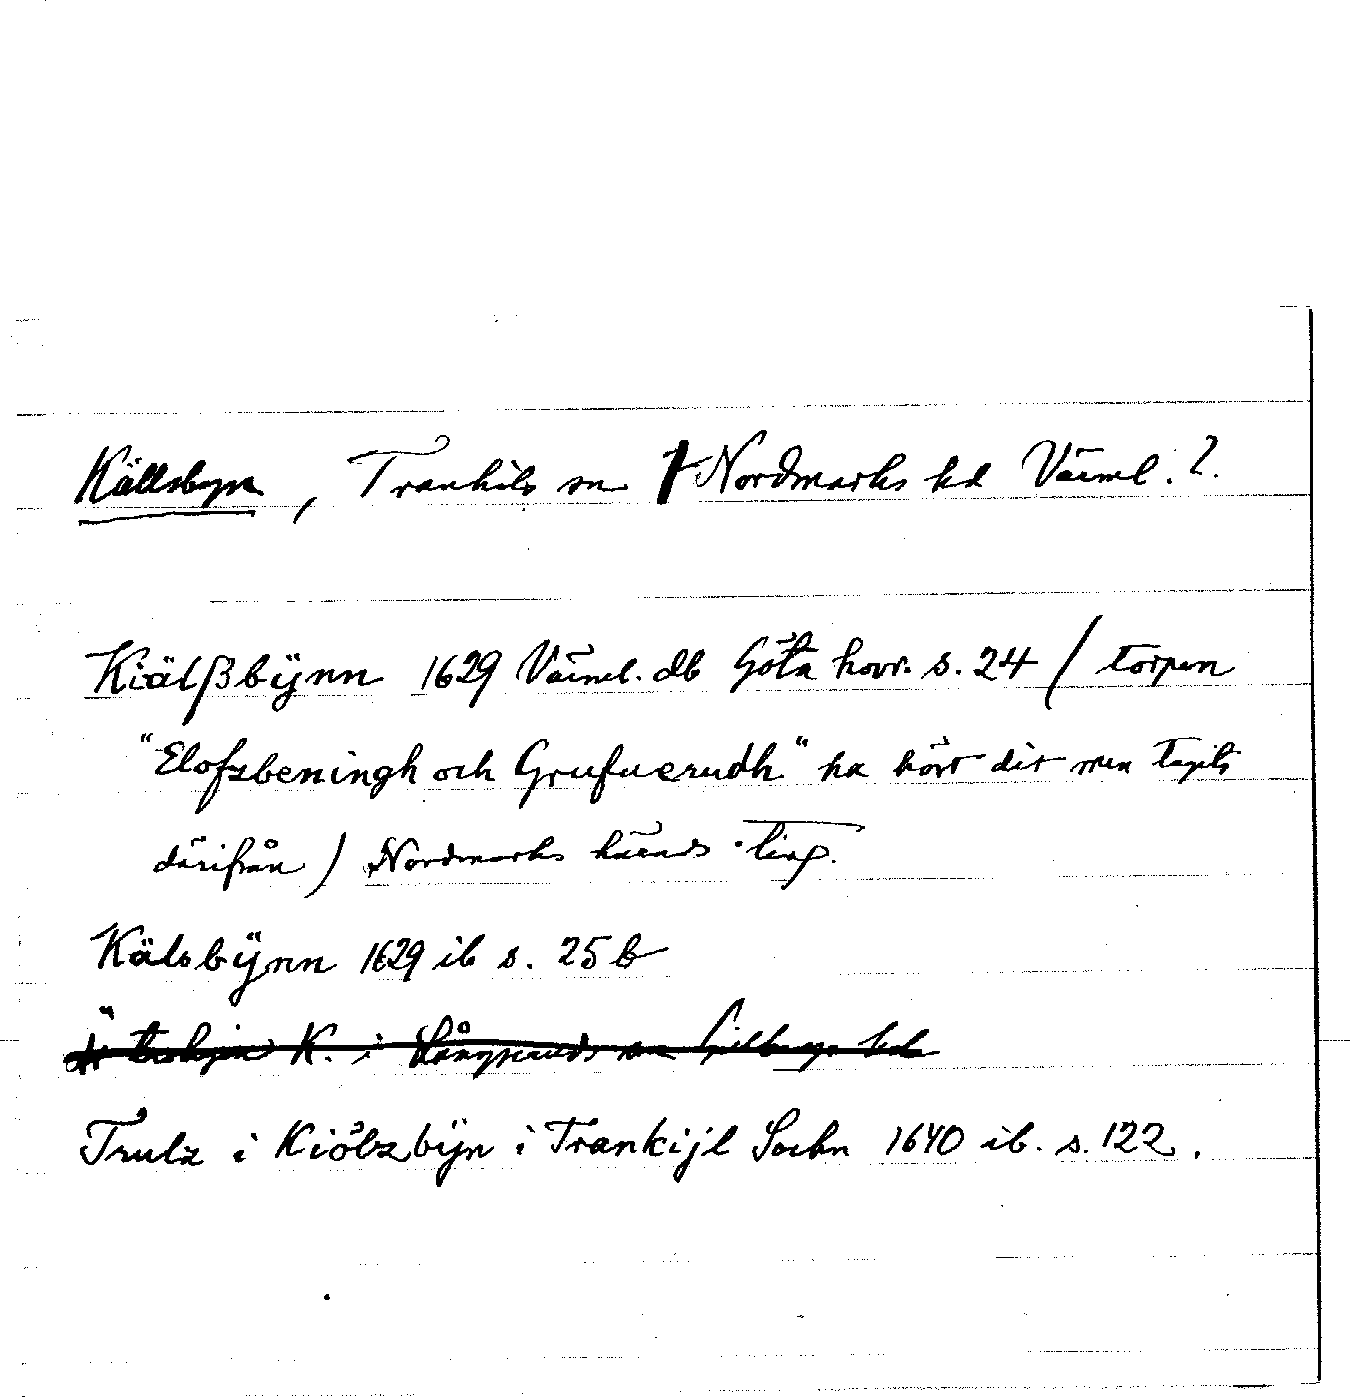 Källsbyn, Trankils sn Nordmarks hd Värml. ?.
Kiälßbÿnn 1629 Värml. db Göta hovr. s. 24 / torpen
"Elofzbeningh och Grufuerudh" ha hört dit men tagits
därifrån ) Nordmarks härads ting.
Kälsbÿnn 1629 ib s. 25 b
K. i Långseruds sn Gillbergs hd
Trulz i Kiölzbÿn i Trankijl Sochn 1640 ib. s. 122.